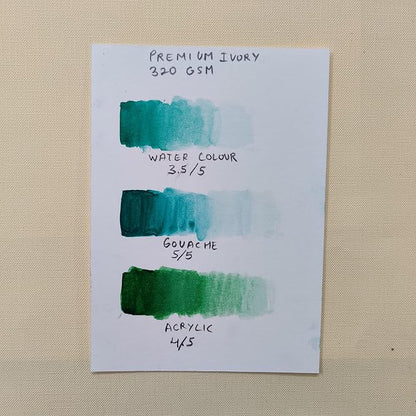 PREMIUM IVORY
320 GSM
WATER COLOUR
3.5/5
GOUACHE
5/5
ACRYLIC
4/5